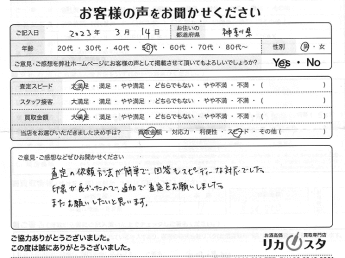 お客様の声をお聞かせください
ご記入日 2023年 3月 14日 お住いの都道府県 神奈川県
年齢 20代・30代・40代・50代・60代・70代・80代〜 性別 男・女
ご意見・ご感想を弊社ホームページにお客様の声として掲載させて頂いてもよろしいでしょうか? Yes・No
査定スピード 大満足・満足・やや満足・どちらでもない・やや不満・不満・( )
スタッフ接客 大満足・満足・やや満足・どちらでもない・やや不満・不満・( )
買取金額 大満足・満足・やや満足・どちらでもない・やや不満・不満・( )
当店をお選びいただきました決め手は? 買取金額・対応力・利便性・スピード・その他( )
ご意見・ご感想などぜひお聞かせください
査定の依頼方法が簡単で、回答もスピーディーな対応でした。
印象が良かったので、追加で査定をお願いしました。
またお願いしたいと思います。
ご協力ありがとうございました。
この度は誠にありがとうございました。
お酒高価 買取専門店
リカスタ